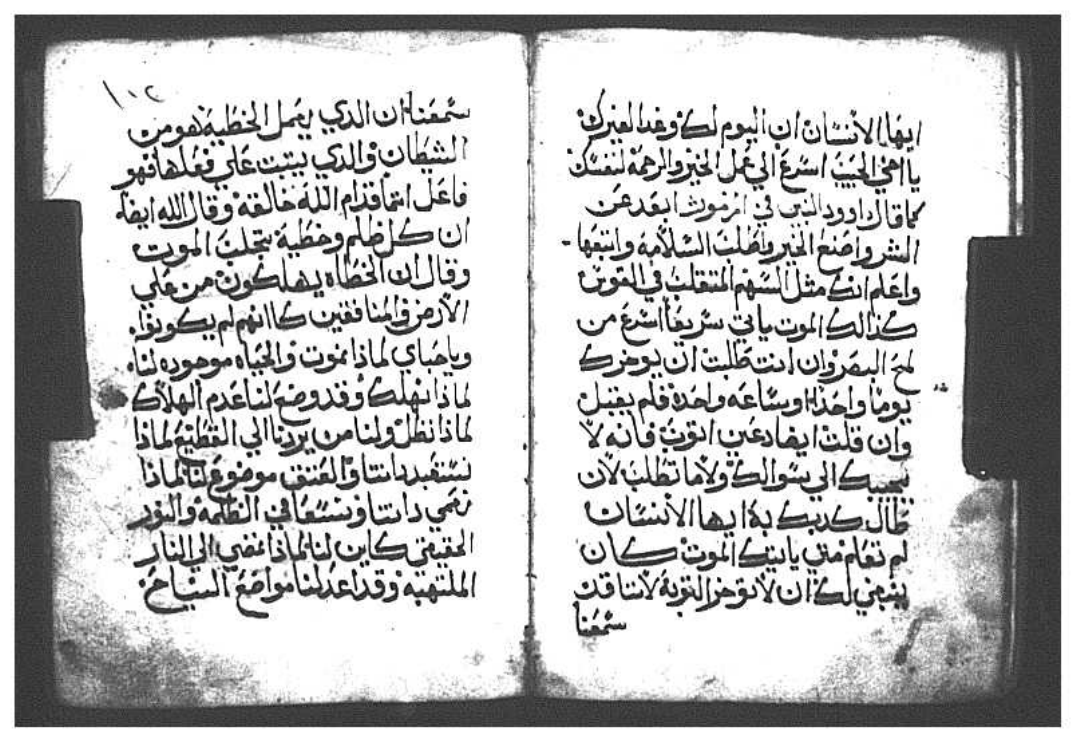 ايها الانسان ان اليوم لك وغدا لغيرك
يا اخي الحبيب اسرع الي عمل الخير والرحمه لنفسك
كما قال داوود النبي في ابعد عن
الشر واصنع الخير واطلب السلامه واتبعها
واعلم انك مثل السهم المتقلب في القوس
كذالك الموت ياتي سريعا اسرع من
لمح البصر وان انت طلبت ان يوخرك
يوما واحدا او ساعه واحده فلم يقبل
وان قلت ايضا دعني اتوب فانه لا
يجيبك الي سوالك ولا ما تطلب لان
طال كدبك به ايها الانسان
لم تعلم متي ياتيك الموت كان
ينبغي لك ان لا توخر التوبة لاننا قد
سمعنا
١٠٢
سمعنا ان الذي يعمل الخطية هو من
الشيطان والذي يبتت علي فعلها فهو
فاعل اتما قدام الله خالقه وقال الله ايضا
ان كل ظلم وخطية تجلب الموت
وقال ان الخطاه يهلكون من علي
الارض والمنافقين كا انهم لم يكونوا
وياحباي لماذا نموت والحياه موجوده لنا
لماذا نهلك وقد وضع لنا عدم الهلاك
لماذا نظل ولنا من يردنا الي القطيع لماذا
نستعبد داتنا والعتق موضوع لنا لماذا
نرمي داتنا ونستعا في الظلمه والنور
الحقيقي كاين لنا لماذا نمضي الي النار
الملتهبه وقد اعد لنا مواضع السياح